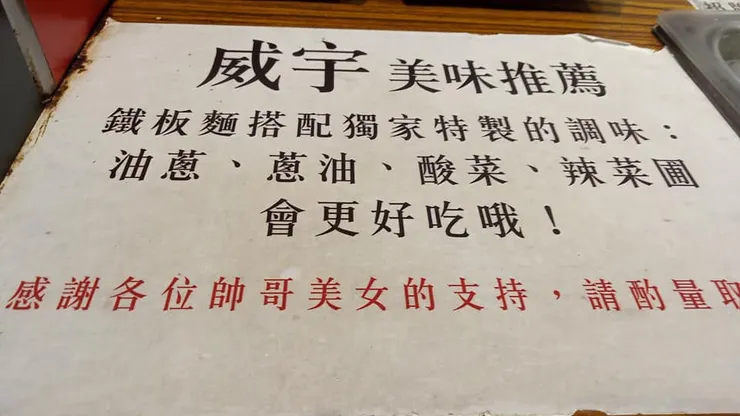 威宇 美味推薦
鐵板麵搭配獨家特製的調味：
油蔥、蔥油、酸菜、辣菜圃
會更好吃哦！
感謝各位帥哥美女的支持，請酌量取